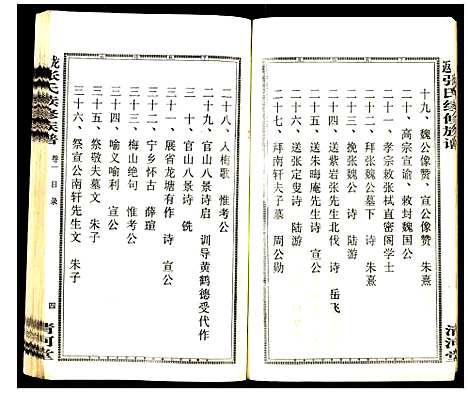 十九、魏公像赞、宣公像赞 朱熹
二十、高宗宣谕、敕封魏国公
二十一、孝宗敕张栻直密阁学士
二十二、拜张魏公墓下 诗 朱熹
二十三、挽张魏公 诗 陆游
二十四、送紫岩张先生北伐 诗 岳飞
二十五、送朱晦庵先生诗 宣公
二十六、送张定叟诗 陆游
二十七、拜南轩夫子墓 周公勋
二十八、入梅歌 惟考公
二十九、官山八景诗启 训导黄鹤德受代作
三十、官山八景诗 铣
三十一、展省龙塘有作 诗 宣公
三十二、宁乡怀古 薛瑄
三十三、梅山绝句 惟考公
三十四、喻义喻利 宣公
三十五、祭敬夫墓文 朱子
三十六、祭宣公南轩先生文 朱子
张氏续修族谱
卷二 目录
四
清河堂
张氏续修族谱
清河堂